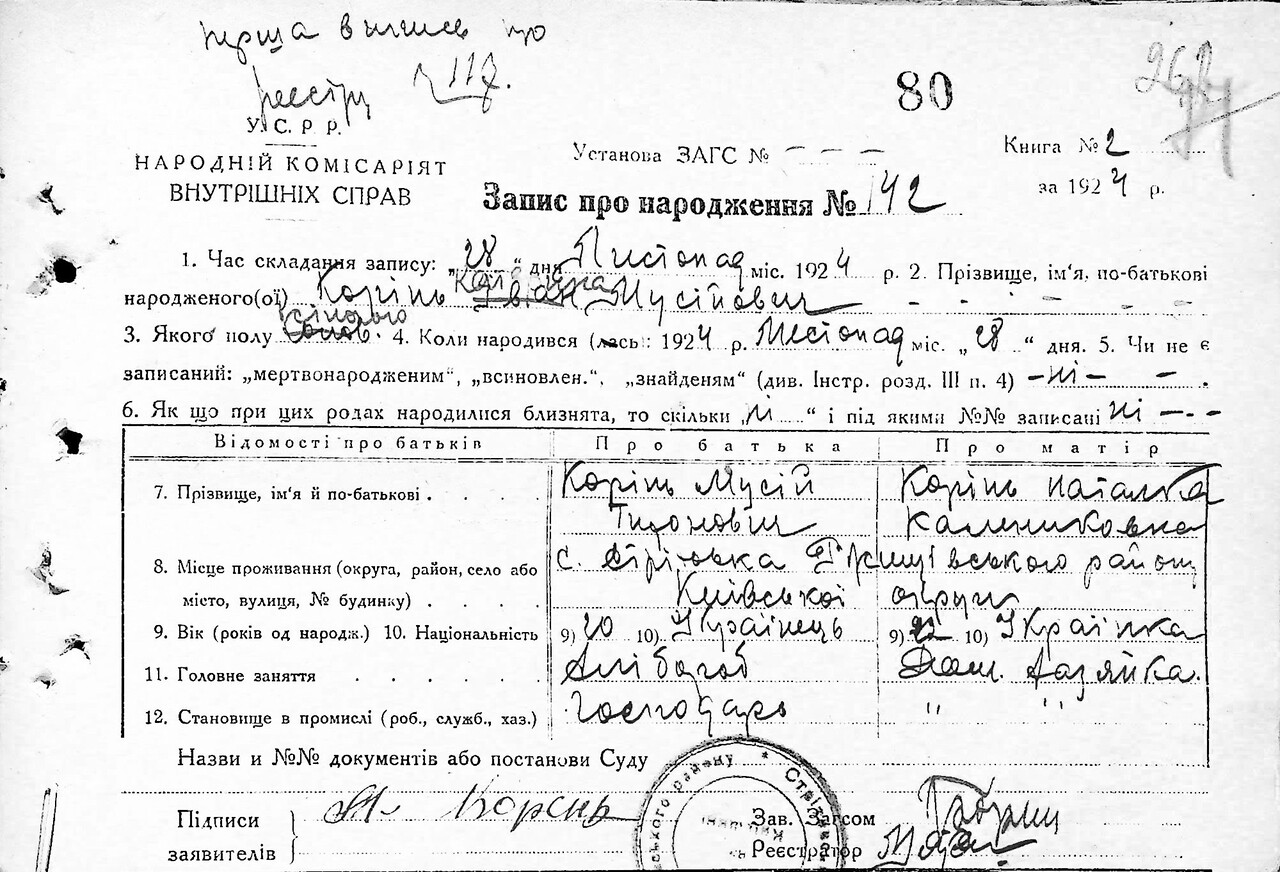 перша випись по
реєстру №117.
80
У. С. Р. Р.
НАРОДНІЙ КОМІСАРІЯТ
ВНУТРІШНІХ СПРАВ
Установа ЗАГС № – – –
Книга № 2
за 1924 р.
Запис про народження № 142
1. Час складання запису: „28“ дня Листопад міс. 1924 р. 2. Прізвище, ім'я, по-батькові
народженого(ої) Корінь Іван Мусійович – – – – –
3. Якого полу 4. Коли народився (лась): 1924 р. Листопад міс. „28“ дня. 5. Чи не є
записаний: „мертвонародженим“, „всиновлен.“, „знайденям“ (див. Інстр. розд. III п. 4) – ні – –
6. Як що при цих родах народилися близнята, то скільки „ні“ і під якими №№ записані ні – – –
Відомості про батьків Про батька Про матір
7. Прізвище, ім'я й по-батькові . . . . Корінь Мусій Корінь Наталка
Каленнковна
8. Місце проживання (округа, район, село або с. району
місто, вулиця, № будинку) . . . . Київської округи
9. Вік (років од народж.) 10. Національність 9) 20 10) Українець 9) 22 10) Українка
11. Головне заняття . . . . . . Хлібороб Дом. Хазяйка.
12. Становище в промислі (роб., служб., хаз.) Господарь " "
Назви и №№ документів або постанови Суду
Підписи
заявителів
М. Корень
Зав. Загсом
Реєстратор